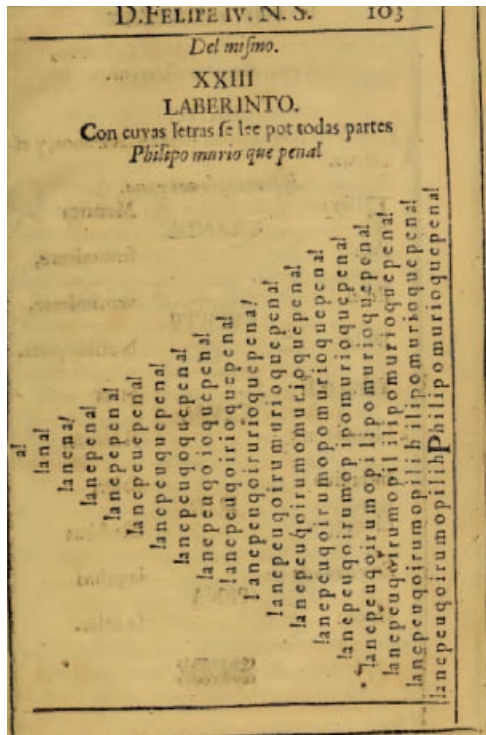 D. FELIPE IV. N. S. 103
Del mismo.
XXIII
LABERINTO.
Con cuyas letras se lee pot todas partes
Philipo murio que pena!
a!
!ana!
!anena!
!anepena!
!anepepena!
!anepeuepena!
!anepeuquepena!
!anepeuqoquepena!
!anepeuqoioquepena!
!anepeuqoirioquepena!
!anepeuqoirurioquepena!
!anepeuqoirumurioquepena!
!anepeuqoirumomurioquepena!
!anepeuqoirumopomurioquepena!
!anepeuqoirumopipomurioquepena!
!anepeuqoirumopilipomurioquepena!
!anepeuqoirumopililipomurioquepena!
!anepeuqoirumopilihilipomurioquepena!
!anepeuqoirumopilihPhilipomurioquepena!